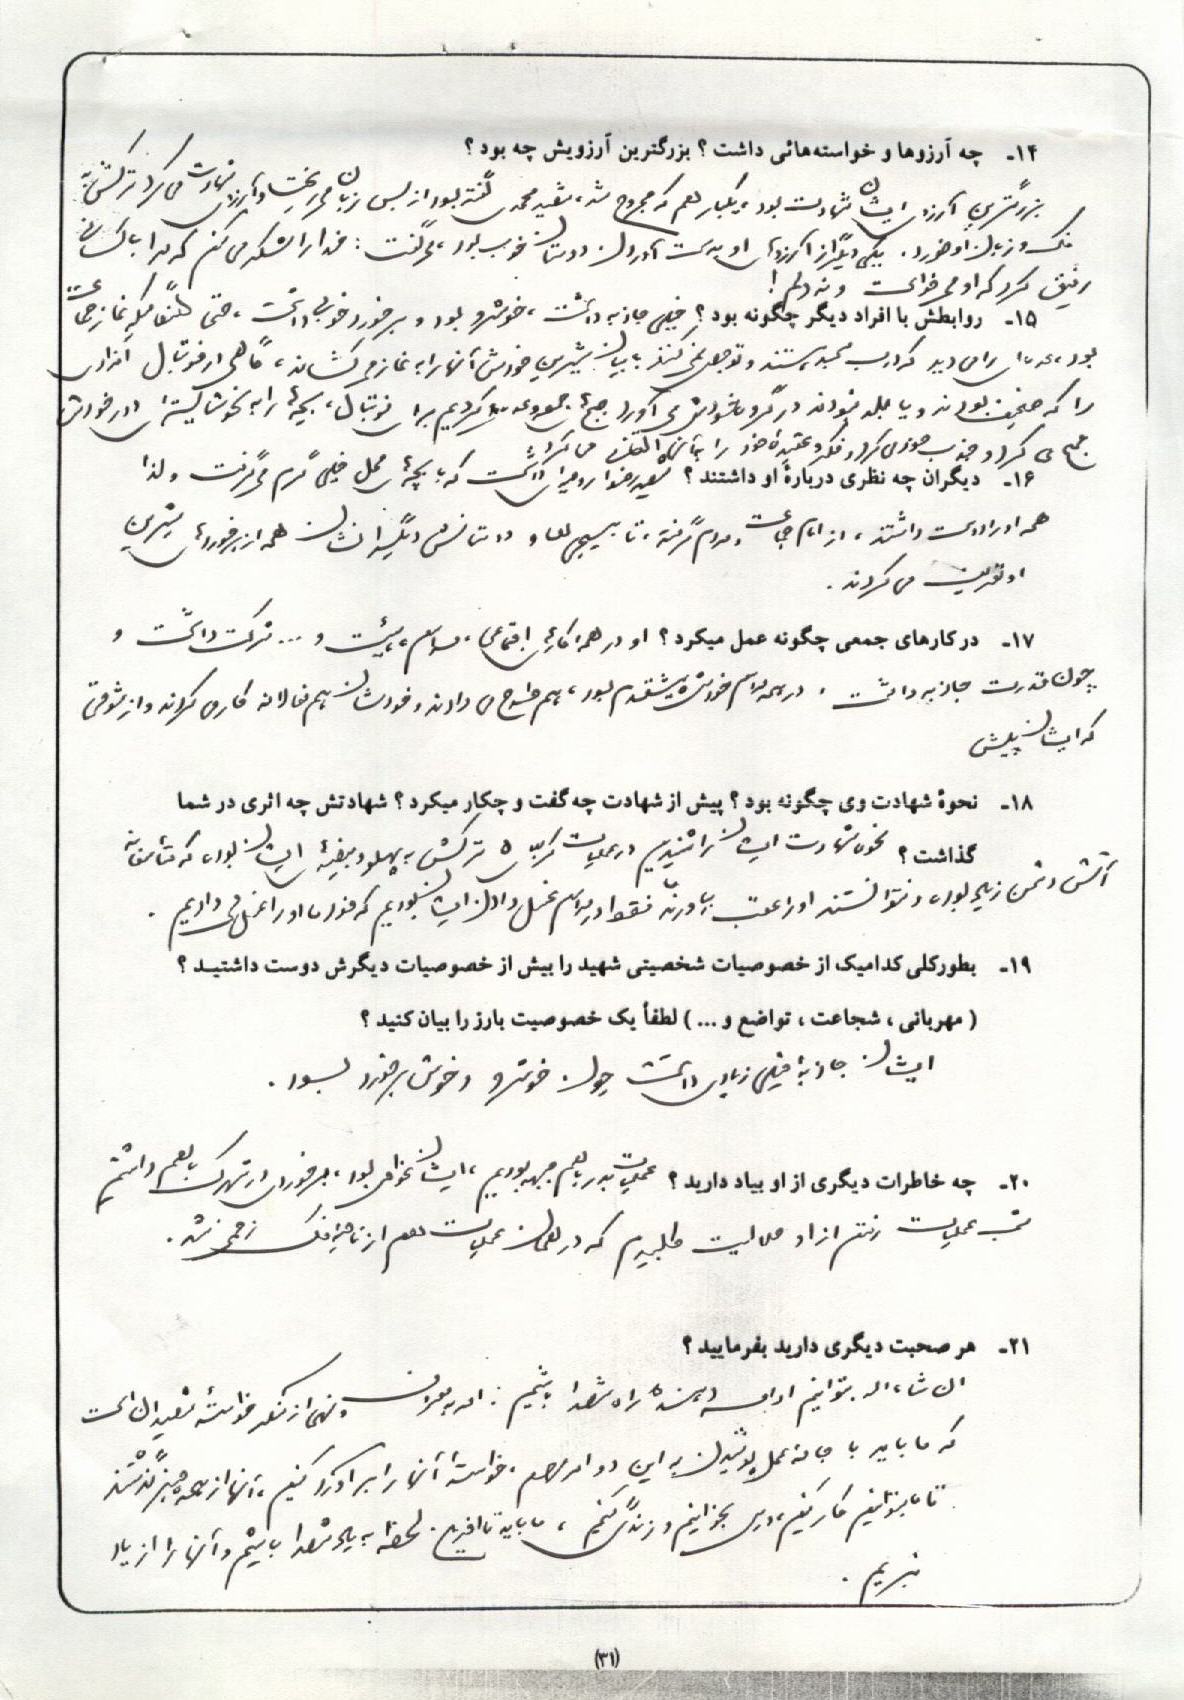 ۱۴ـ چه آرزوها و خواسته‌هائی داشت؟ بزرگترین آرزویش چه بود؟
بزرگترین آرزوی ایشان شهادت بود، یکبار هم که مجروح شد، شهید محمدی گفته بود از بس زبان می‌ریخت و آرزوی شهادت می‌کرد ترکش به
فک و زبان او خورد. یکی دیگر از آرزوهای او بدست آوردن دوستان خوب بود، می‌گفت: خدا را شکر می‌کنم که مرا با کسانی
رفیق کرد که او می‌خواست و نه دلم!
۱۵ـ روابطش با افراد دیگر چگونه بود؟ خیلی جاذبه داشت، خوشرو بود و برخورد خوبی داشت، حتی هنگامیکه نماز جماعت
بود، عده‌ای را می‌دید که درب مسجد هستند و توجهی نمی‌کنند با بیان شیرین خودش آنها را به نماز می‌کشاند، گاهی از فوتبال افرادی
را که ضعیف بودند و یا بلد نبودند در گروه خودش می‌آورد صبح جمعه‌ها می‌کردیم برای فوتبال، بچه‌ها را به نحو شایسته‌ای دور خودش
جمع می‌کرد و جذب خود می‌کرد و فکر و عقیدهٔ خود را به آنها القاء می‌کرد
۱۶ـ دیگران چه نظری دربارهٔ او داشتند؟ شهید رضوا روحیه‌ای داشت که با بچه‌های محل خیلی گرم می‌گرفت و لذا
همه او را دوست داشتند، از امام جماعت و مردم گرفته، تا بسیجی‌ها و دوستانش و دیگران همه از برخوردهای شیرین
او تعریف می‌کردند.
۱۷ـ درکارهای جمعی چگونه عمل میکرد؟ او در همه کارهای اجتماعی، مراسم، هیئت و ... شرکت داشت و
چون قدرت جاذبه داشت، در همه مراسم خودش پیشقدم بود، هم طرح می‌دادند و خودشان هم فعالانه کار می‌کردند و از شوقی
که ایشان پیش
۱۸ـ نحوهٔ شهادت وی چگونه بود؟ پیش از شهادت چه گفت و چکار میکرد؟ شهادتش چه اثری در شما
گذاشت؟ نحوه شهادت ایشان را شنیدیم در عملیات کربلای ۵ ترکش به پهلو و بیضهٔ ایشان بود، که متأسفانه
آتش دشمن زیاد بود، و نتوانستند او را عقب بیاورند فقط در مراسم غسل دادن ایشان بودیم که خود ما او را غسل می‌دادیم.
۱۹ـ بطورکلی کدامیک از خصوصیات شخصیتی شهید را بیش از خصوصیات دیگرش دوست داشتیـد؟
(مهربانی، شجاعت، تواضع و ...) لطفاً یک خصوصیت بارز را بیان کنید؟
ایشان جاذبهٔ خیلی زیادی داشت چون خوشرو و خوش برخورد بود.
۲۰ـ چه خاطرات دیگری از او بیاد دارید؟ عملیات بدر باهم جبهه بودیم، ایشان غواص بود، برخوردی در شهرک باهم داشتیم
شب عملیات رفتن از او حلالیت طلبیدم که در همان عملیات هم از ناحیهٔ فک زخمی شد.
۲۱ـ هر صحبت دیگری دارید بفرمایید؟
ان شاء اله بتوانیم ادامه دهنده راه شهدا باشیم: امر به معروف و نهی از منکر خواستهٔ شهیدان است
که ما باید با جامه عمل پوشیدن به این دو امر مهم، خواستهٔ آنها را برآورده کنیم، آنها از همه چیز گذشتند
تا ما بتوانیم کار کنیم، درس بخوانیم و زندگی کنیم، ما باید تا آخرین لحظه به یاد شهدا باشیم و آنها را از یاد
نبریم.
(۳۱)